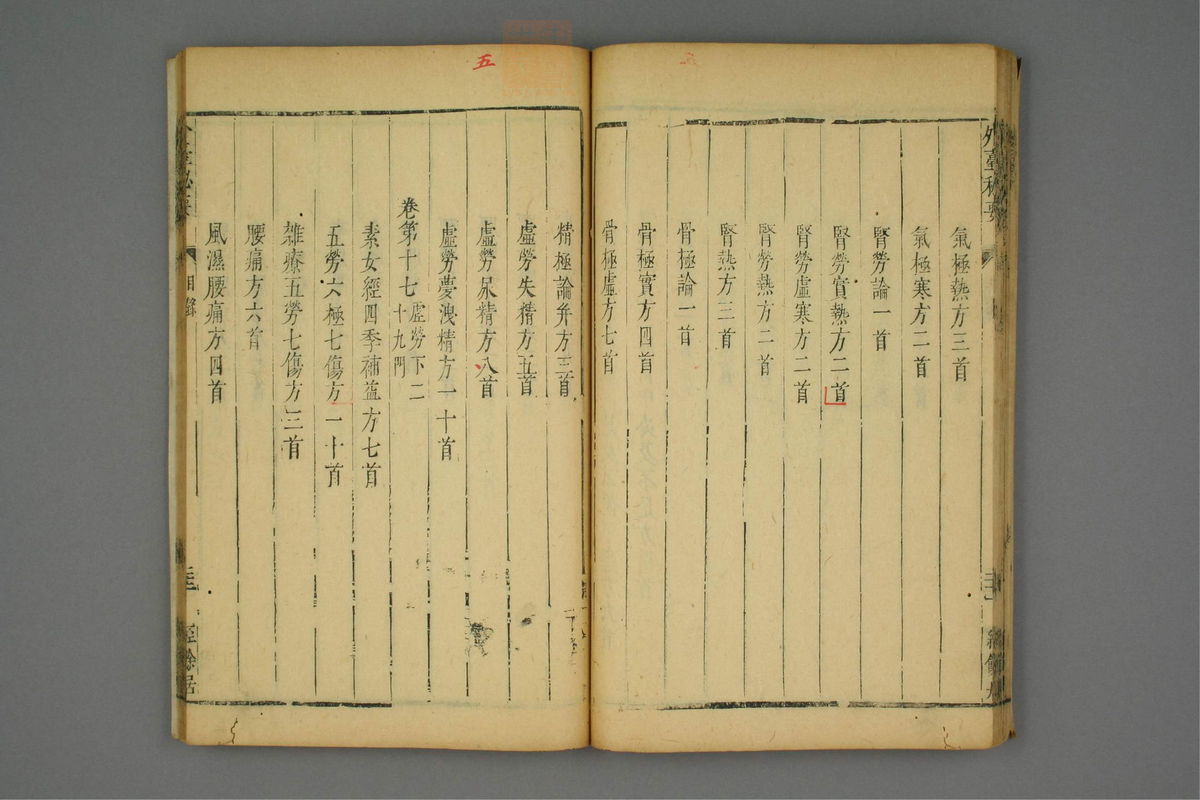 外臺秘要
氣極熱方三首
氣極寒方二首
腎勞論一首
腎勞實熱方二首
腎勞虛寒方二首
腎勞熱方二首
腎熱方三首
骨極論一首
骨極實方四首
骨極虛方七首
五
精極論并方三首
虛勞失精方五首
虛勞尿精方八首
虛勞夢洩精方一十首
卷第十七虛勞下二十九門
素女經四季補益方七首
五勞六極七傷方一十首
雜療五勞七傷方三首
腰痛方六首
風濕腰痛方四首
目錄
經餘居